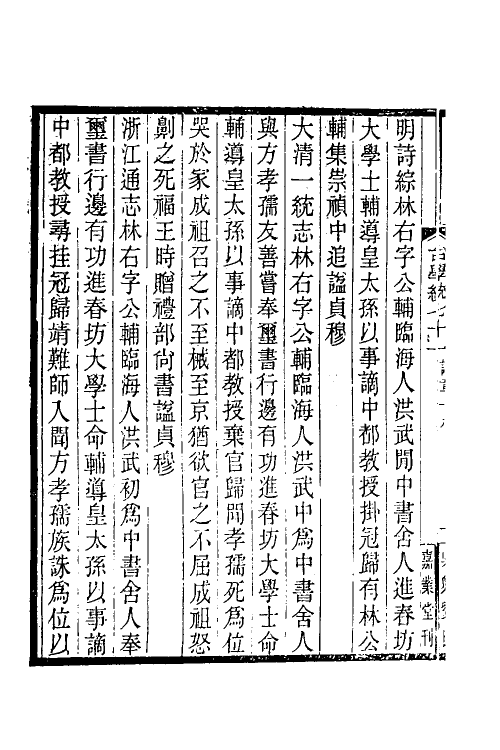 明詩綜林右字公輔臨海人洪武閒中書舍人進春坊
大學士輔導皇太孫以事謫中都教授掛冠歸有林公
輔集崇禎中追謚貞穆
大清一統志林右字公輔臨海人洪武中爲中書舍人
與方孝孺友善嘗奉璽書行邊有功進春坊大學士命
輔導皇太孫以事謫中都教授棄官歸聞孝孺死爲位
哭於家成祖召之不至械至京猶欲官之不屈成祖怒
劓之死福王時贈禮部尙書謚貞穆
浙江通志林右字公輔臨海人洪武初爲中書舍人奉
璽書行邊有功進春坊大學士命輔導皇太孫以事謫
中都教授尋挂冠歸靖難師入聞方孝孺族誅爲位以
嘉業堂刊